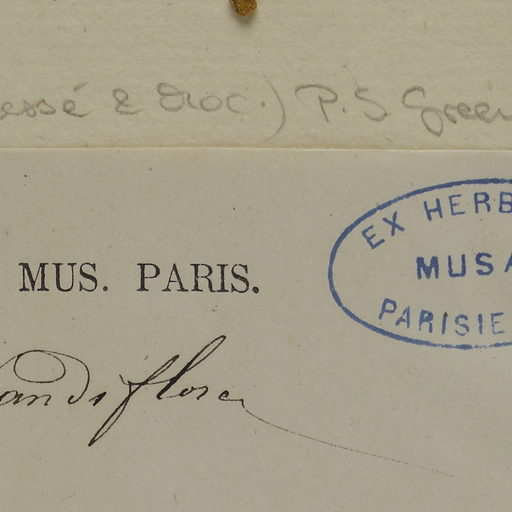 essé & Moc.) P.S Green
EX HERB
MUS. PARIS.
MUSA
PARISIE
andiflora